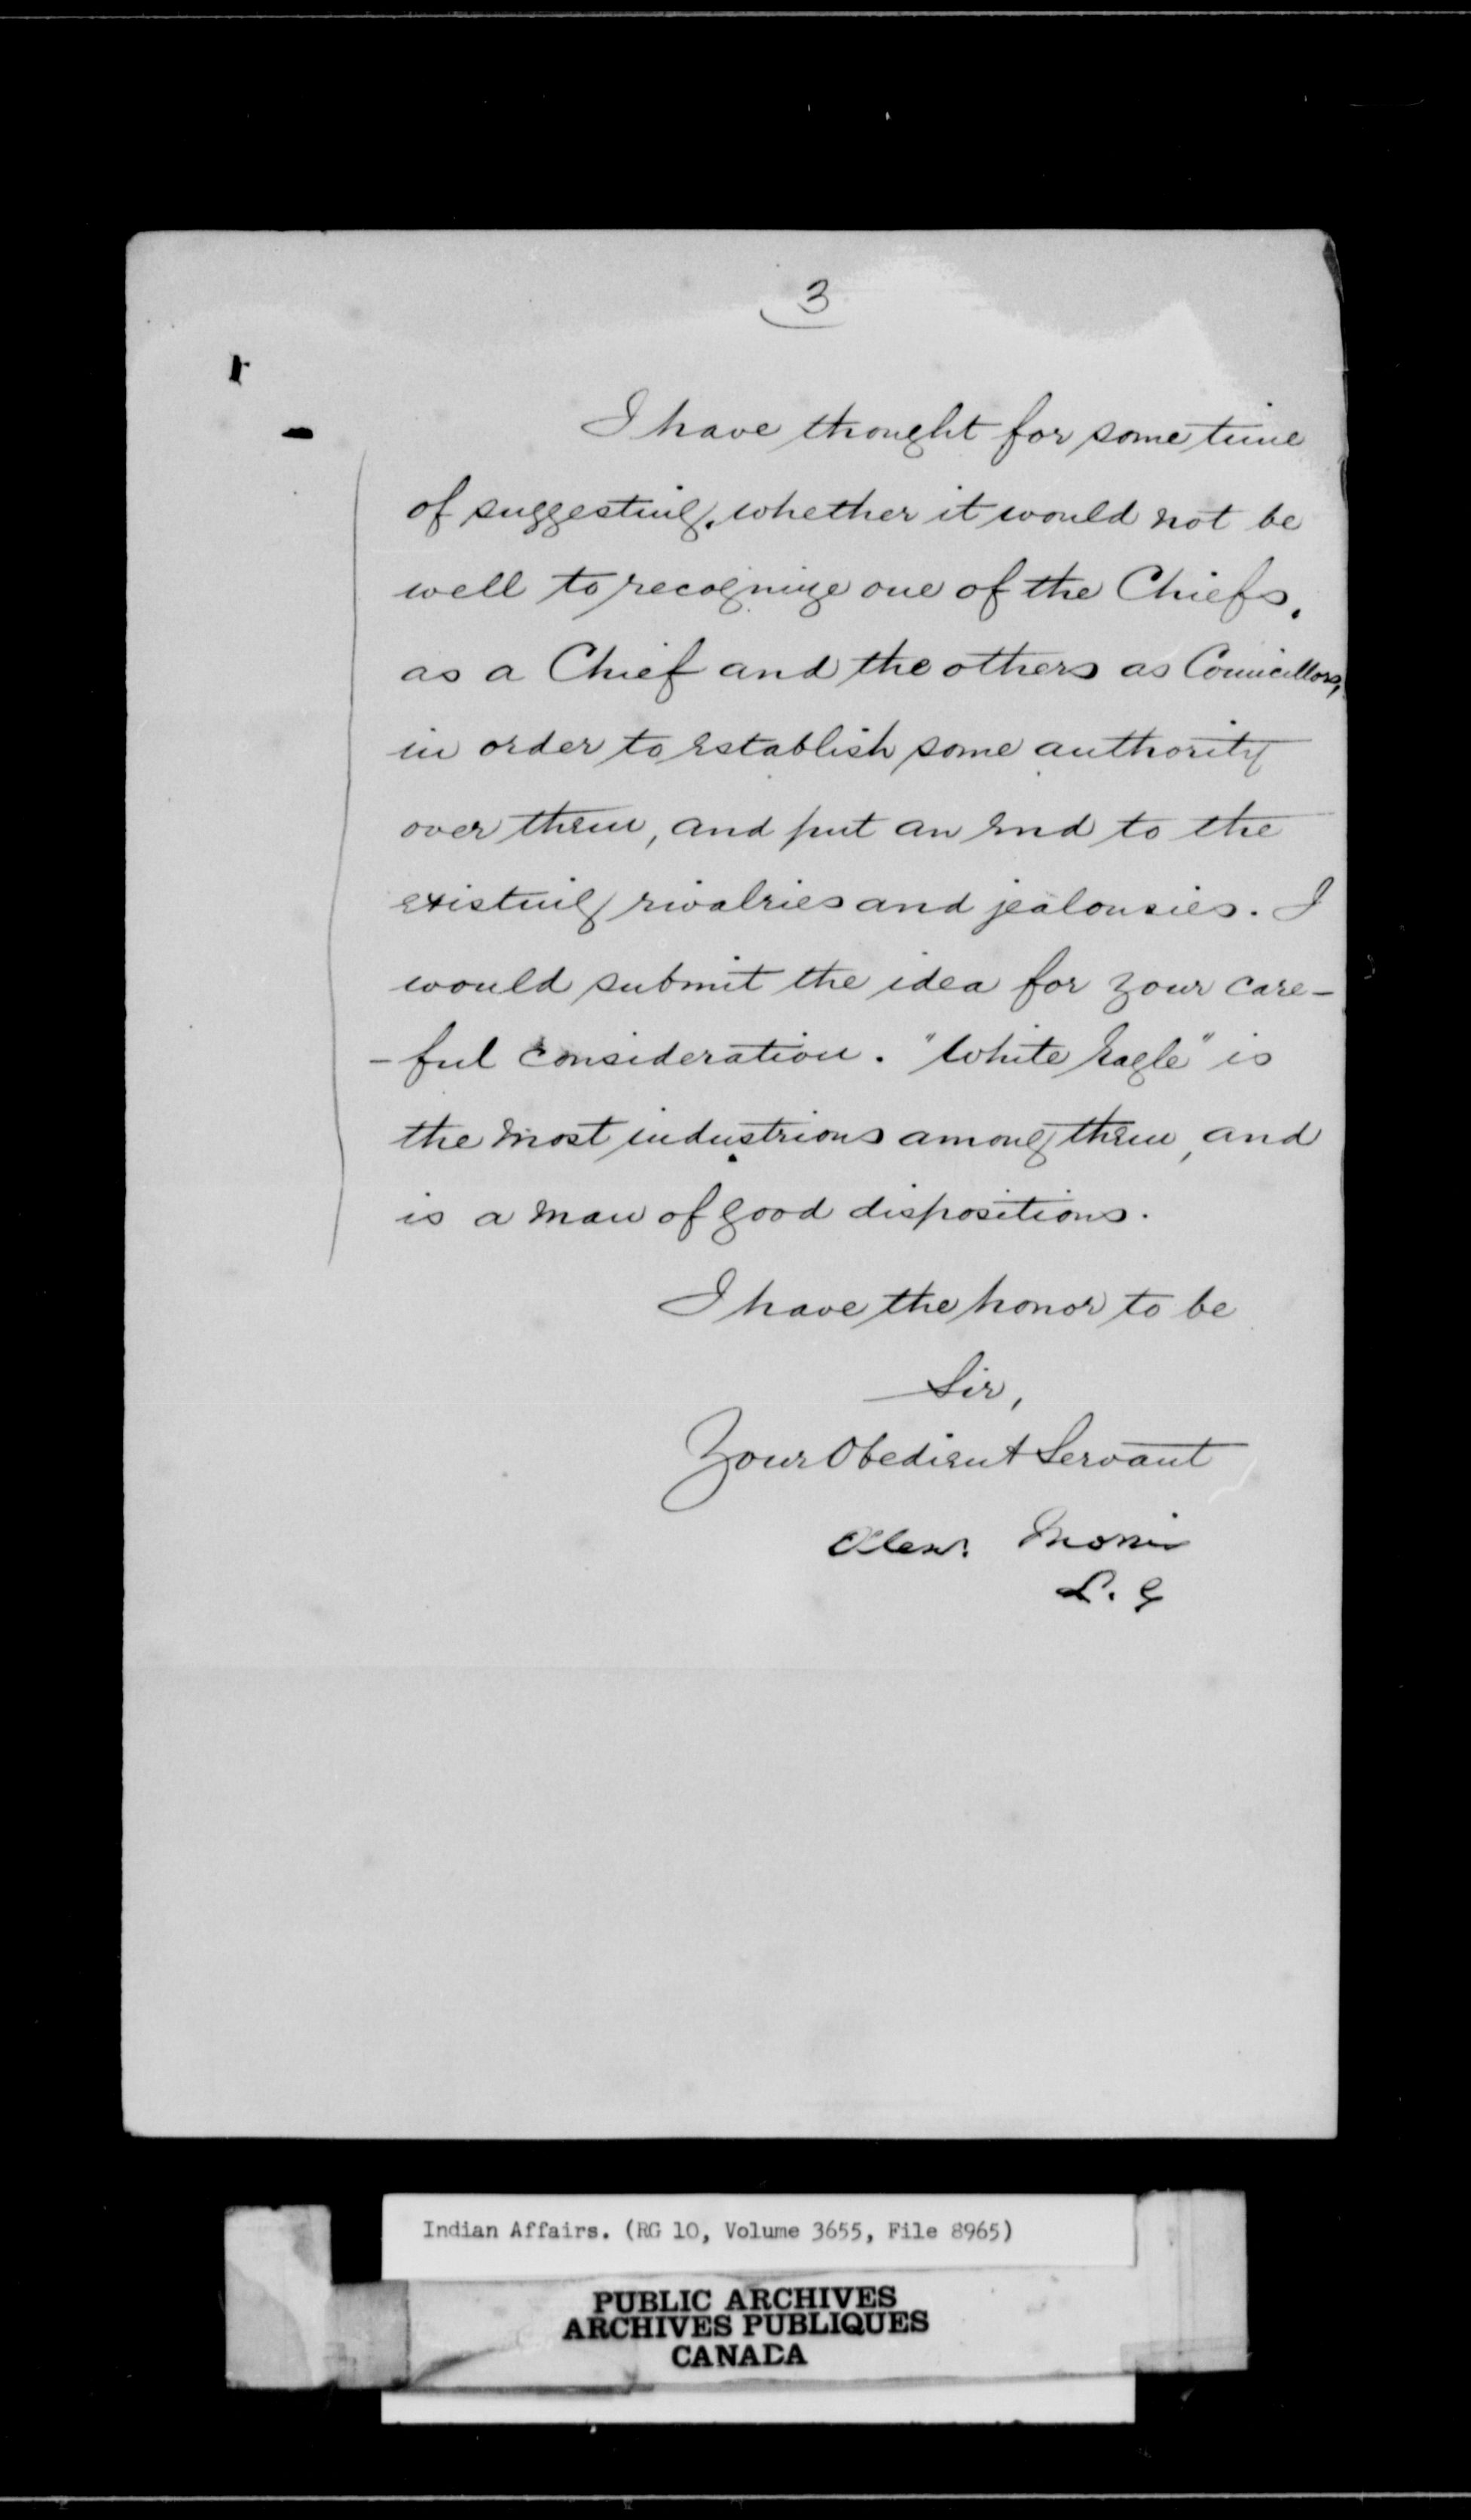 3
I have thought for some time
of suggesting, whether it would not be
well to recognize one of the Chiefs,
as a Chief and the others as Councillors,
in order to establish some authority
over them, and put an end to the
existing rivalries and jealousies. I
would submit the idea for your care-
-ful consideration. "White Eagle" is
the most industrious among them, and
is a man of good dispositions.
I have the honor to be
Sir,
Your Obedient Servant
Alex. Morris
L. G
Indian Affairs. (RG 10, Volume 3655, File 8965)
PUBLIC ARCHIVES
ARCHIVES PUBLIQUES
CANADA